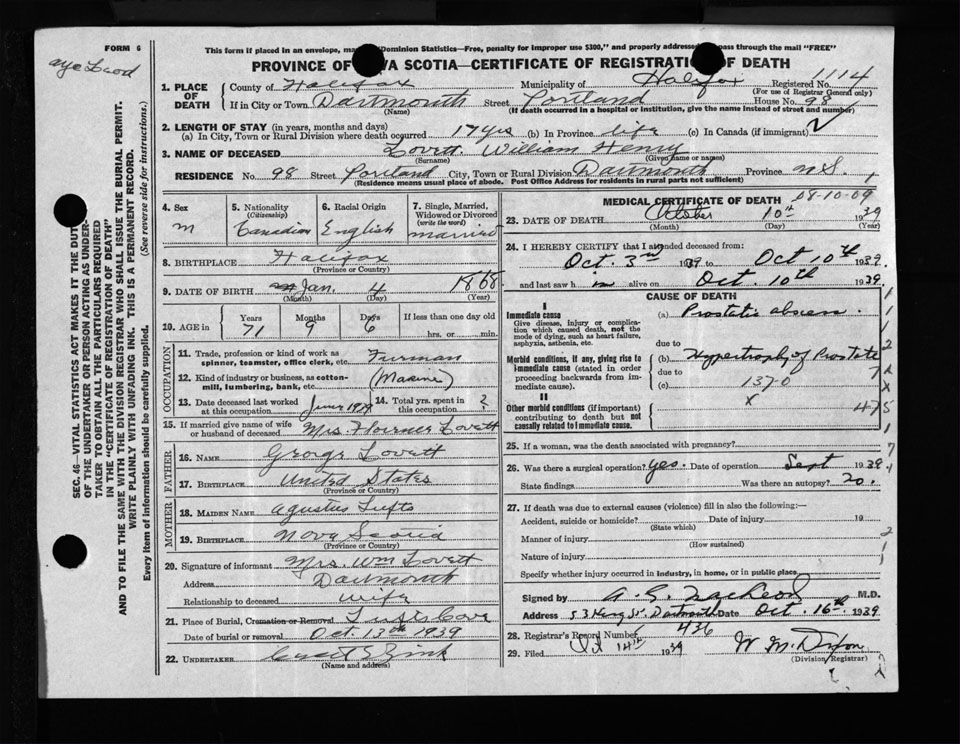 FORM 6
This form if placed in an envelope, ma Dominion Statistics—Free, penalty for improper use $300," and properly addressed pass through the mail "FREE"
PROVINCE OF VA SCOTIA—CERTIFICATE OF REGISTRATI OF DEATH
1. PLACE OF DEATH
County of Halifax Municipality of Halifax Registered No. 1114
(For use of Registrar General only)
If in City or Town Dartmouth Street Portland House No. 98
(Name) (If death occurred in a hospital or institution, give the name instead of street and number)
2. LENGTH OF STAY (in years, months and days)
(a) In City, Town or Rural Division where death occurred 17 yrs (b) In Province life (c) In Canada (if immigrant)
3. NAME OF DECEASED Lovett William Henry
(Surname) (Given name or names)
RESIDENCE No. 98 Street Portland City, Town or Rural Division Dartmouth Province N.S.
(Residence means usual place of abode. Post Office Address for residents in rural parts not sufficient)
4. Sex
M
5. Nationality
(Citizenship)
Canadian
6. Racial Origin
English
7. Single, Married, Widowed or Divorced
(write the word)
married
8. BIRTHPLACE Halifax
(Province or Country)
9. DATE OF BIRTH Jan. 4 1868
(Month) (Day) (Year)
10. AGE in
Years Months Days If less than one day
71 9 6 hrs. or min.
OCCUPATION
11. Trade, profession or kind of work as spinner, teamster, office clerk, etc.
12. Kind of industry or business, as cotton-mill, lumbering, bank, etc. (Marine)
13. Date deceased last worked at this occupation June
14. Total yrs. spent in this occupation ?
15. If married give name of wife or husband of deceased Mrs. Lovett
FATHER
16. NAME George Lovett
17. BIRTHPLACE United States
(Province or Country)
MOTHER
18. MAIDEN NAME Agustus
19. BIRTHPLACE Nova Scotia
(Province or Country)
20. Signature of informant Mrs. Wm Lovett
Address Dartmouth
Relationship to deceased wife
21. Place of Burial, Cremation or Removal
Date of burial or removal Oct. 13th 1939
22. UNDERTAKER
(Name and address)
MEDICAL CERTIFICATE OF DEATH 08-10-09
23. DATE OF DEATH October 10th 1939
(Month) (Day) (Year)
24. I HEREBY CERTIFY that I attended deceased from:
Oct. 3rd 1939 to Oct 10th 1939.
and last saw h im alive on Oct. 10th 1939.
CAUSE OF DEATH
I
Immediate cause
Give disease, injury or complication which caused death, not the mode of dying, such as heart failure, asphyxia, asthenia, etc.
(a) Prostatic abscess.
due to
Morbid conditions, if any, giving rise to immediate cause (stated in order proceeding backwards from immediate cause).
(b) Hypertrophy of Prostate
due to
(c) 137-0
II
Other morbid conditions (if important) contributing to death but not causally related to immediate cause.
x
475
25. If a woman, was the death associated with pregnancy?
26. Was there a surgical operation? Yes. Date of operation Sept 1939
State findings Was there an autopsy?
27. If death was due to external causes (violence) fill in also the following:—
Accident, suicide or homicide? Date of injury 19
(State which)
Manner of injury
(How sustained)
Nature of injury
Specify whether injury occurred in industry, in home, or in public place
Signed by M.D.
Address 53 King St. Dartmouth Date Oct. 16th 1939
28. Registrar's Record Number 436
29. Filed Oct 14th 1939 W. M. Dixon
(Division Registrar)
SEC. 46—VITAL STATISTICS ACT MAKES IT THE DUT
OF THE UNDERTAKER OR PERSON ACTING AS UNDER-
TAKER TO OBTAIN ALL THE PARTICULARS REQUIRED
IN THE "CERTIFICATE OF REGISTRATION OF DEATH"
AND TO FILE THE SAME WITH THE DIVISION REGISTRAR WHO SHALL ISSUE THE BURIAL PERMIT.
WRITE PLAINLY WITH UNFADING INK. THIS IS A PERMANENT RECORD.
Every item of information should be carefully supplied. (See reverse side for instructions.)